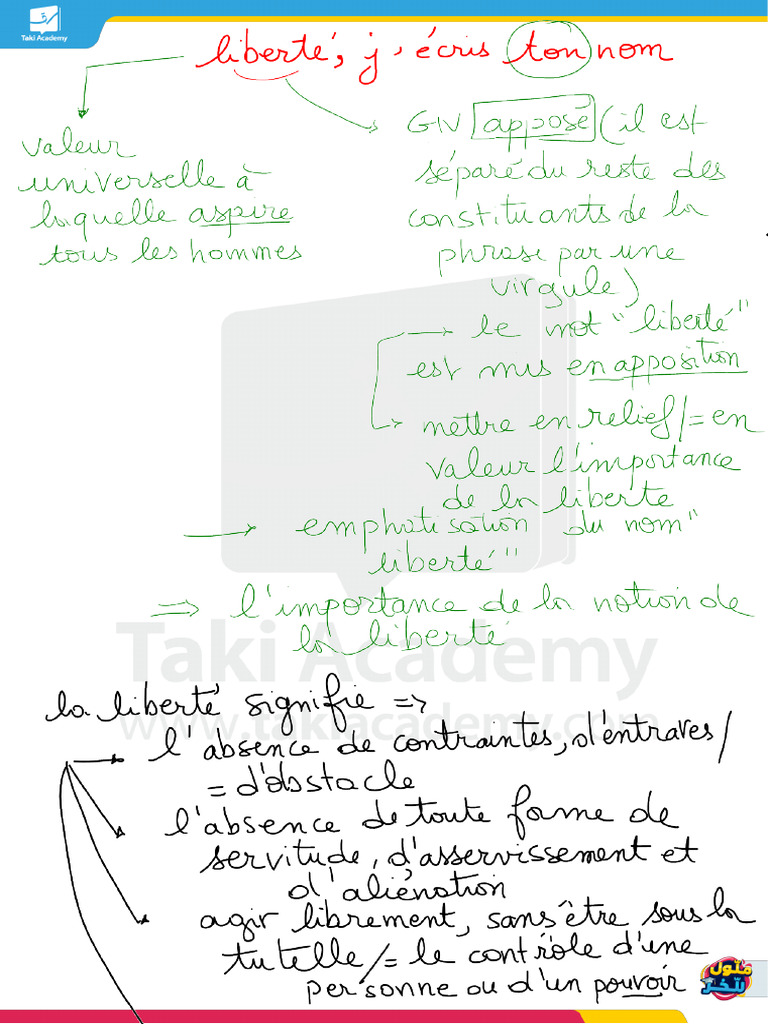 Taki Academy
liberté, j'écris ton nom
valeur
universelle à
laquelle aspire
tous les hommes
GN apposé (il est
séparé du reste des
constituants de la
phrase par une
virgule)
→ le mot "liberté"
est mis en apposition
→ mettre en relief/= en
valeur l'importance
de la liberté
→ emphatisation du nom"
liberté"
⇒ l'importance de la notion de
la liberté
Taki Academy
www.takiacademy.com
la liberté signifie ⇒
l'absence de contraintes, d'entraves/
= d'obstacle
l'absence de toute forme de
servitude, d'asservissement et
d'aliénation
agir librement, sans être sous la
tutelle/= le contrôle d'une
personne ou d'un pouvoir